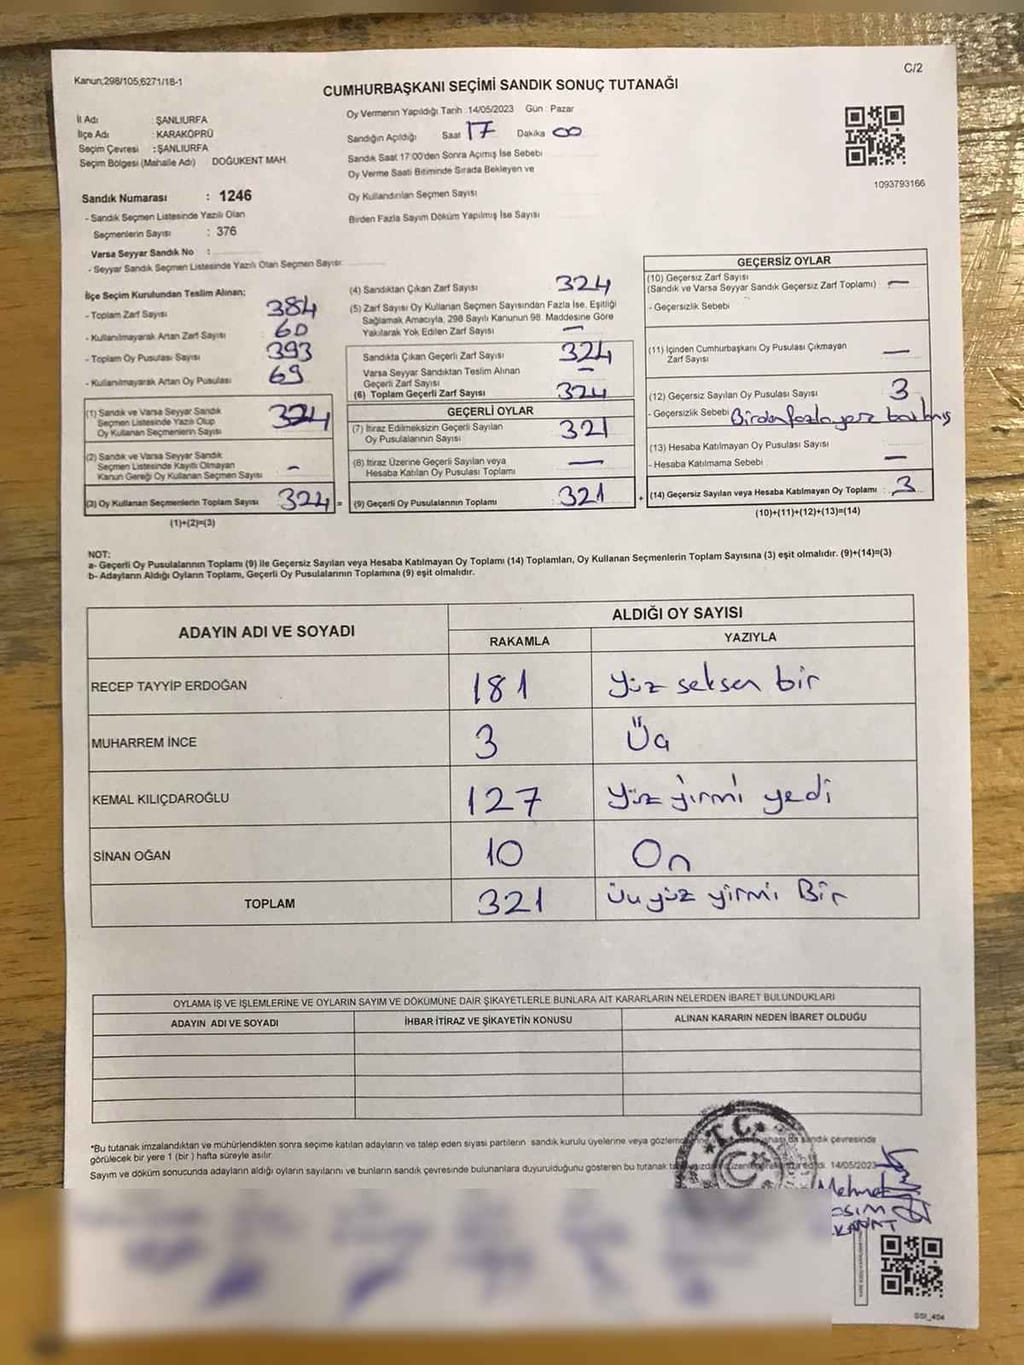 Kanun;298/105,6271/18-1
C/2
CUMHURBAŞKANI SEÇİMİ SANDIK SONUÇ TUTANAĞI
İl Adı : ŞANLIURFA
İlçe Adı : KARAKÖPRÜ
Seçim Çevresi : ŞANLIURFA
Seçim Bölgesi (Mahalle Adı) DOĞUKENT MAH.
Oy Vermenin Yapıldığı Tarih :14/05/2023 Gün : Pazar
Sandığın Açıldığı Saat 17 Dakika 00
Sandık Saat 17:00'den Sonra Açımış İse Sebebi
Oy Verme Saati Bitiminde Sırada Bekleyen ve
Oy Kullandırılan Seçmen Sayısı
Birden Fazla Sayım Döküm Yapılmış İse Sayısı
1093793166
Sandık Numarası : 1246
- Sandık Seçmen Listesinde Yazılı Olan
Seçmenlerin Sayısı : 376
Varsa Seyyar Sandık No :
- Seyyar Sandık Seçmen Listesinde Yazılı Olan Seçmen Sayısı:
İlçe Seçim Kurulundan Teslim Alınan;
- Toplam Zarf Sayısı 384
- Kullanılmayarak Artan Zarf Sayısı 60
- Toplam Oy Pusulası Sayısı 393
- Kullanılmayarak Artan Oy Pusulası 69
(1) Sandık ve Varsa Seyyar Sandık
Seçmen Listesinde Yazılı Olup
Oy Kullanan Seçmenlerin Sayısı 324
(2) Sandık ve Varsa Seyyar Sandık
Seçmen Listesinde Kayıtlı Olmayan
Kanun Gereği Oy Kullanan Seçmen Sayısı -
(3) Oy Kullanan Seçmenlerin Toplam Sayısı 324 =
(1)+(2)=(3)
(4) Sandıktan Çıkan Zarf Sayısı 324
(5) Zarf Sayısı Oy Kullanan Seçmen Sayısından Fazla İse, Eşitliği
Sağlamak Amacıyla, 298 Sayılı Kanunun 98. Maddesine Göre
Yakılarak Yok Edilen Zarf Sayısı -
Sandıkta Çıkan Geçerli Zarf Sayısı 324
Varsa Seyyar Sandıktan Teslim Alınan
Geçerli Zarf Sayısı -
(6) Toplam Geçerli Zarf Sayısı 324
GEÇERLİ OYLAR
(7) İtiraz Edilmeksizin Geçerli Sayılan
Oy Pusulalarının Sayısı 321
(8) İtiraz Üzerine Geçerli Sayılan veya
Hesaba Katılan Oy Pusulası Toplamı -
(9) Geçerli Oy Pusulalarının Toplamı 321 +
GEÇERSİZ OYLAR
(10) Geçersiz Zarf Sayısı
(Sandık ve Varsa Seyyar Sandık Geçersiz Zarf Toplamı) -
- Geçersizlik Sebebi
(11) İçinden Cumhurbaşkanı Oy Pusulası Çıkmayan
Zarf Sayısı -
(12) Geçersiz Sayılan Oy Pusulası Sayısı 3
- Geçersizlik Sebebi Birden fazla yere basılmış
(13) Hesaba Katılmayan Oy Pusulası Sayısı
- Hesaba Katılmama Sebebi -
(14) Geçersiz Sayılan veya Hesaba Katılmayan Oy Toplamı 3
(10)+(11)+(12)+(13)=(14)
NOT:
a- Geçerli Oy Pusulalarının Toplamı (9) ile Geçersiz Sayılan veya Hesaba Katılmayan Oy Toplamı (14) Toplamları, Oy Kullanan Seçmenlerin Toplam Sayısına (3) eşit olmalıdır. (9)+(14)=(3)
b- Adayların Aldığı Oyların Toplamı, Geçerli Oy Pusulalarının Toplamına (9) eşit olmalıdır.
ADAYIN ADI VE SOYADI
ALDIĞI OY SAYISI
RAKAMLA YAZIYLA
RECEP TAYYİP ERDOĞAN 181 Yüz seksen bir
MUHARREM İNCE 3 Üç
KEMAL KILIÇDAROĞLU 127 Yüz yirmi yedi
SİNAN OĞAN 10 On
TOPLAM 321 Üçyüz yirmi Bir
OYLAMA İŞ VE İŞLEMLERİNE VE OYLARIN SAYIM VE DÖKÜMÜNE DAİR ŞİKAYETLERLE BUNLARA AİT KARARLARIN NELERDEN İBARET BULUNDUKLARI
ADAYIN ADI VE SOYADI İHBAR İTİRAZ VE ŞİKAYETİN KONUSU ALINAN KARARIN NEDEN İBARET OLDUĞU
*Bu tutanak imzalandıktan ve mühürlendikten sonra seçime katılan adayların ve talep eden siyasi partilerin sandık kurulu üyelerine veya sandık çevresinde
görülecek bir yere 1 (bir ) hafta süreyle asılır.
Sayım ve döküm sonucunda adayların aldığı oyların sayılarını ve bunların sandık çevresinde bulunanlara duyurulduğunu gösteren bu tutanak 14/05/2023
T.C.
Mehmet